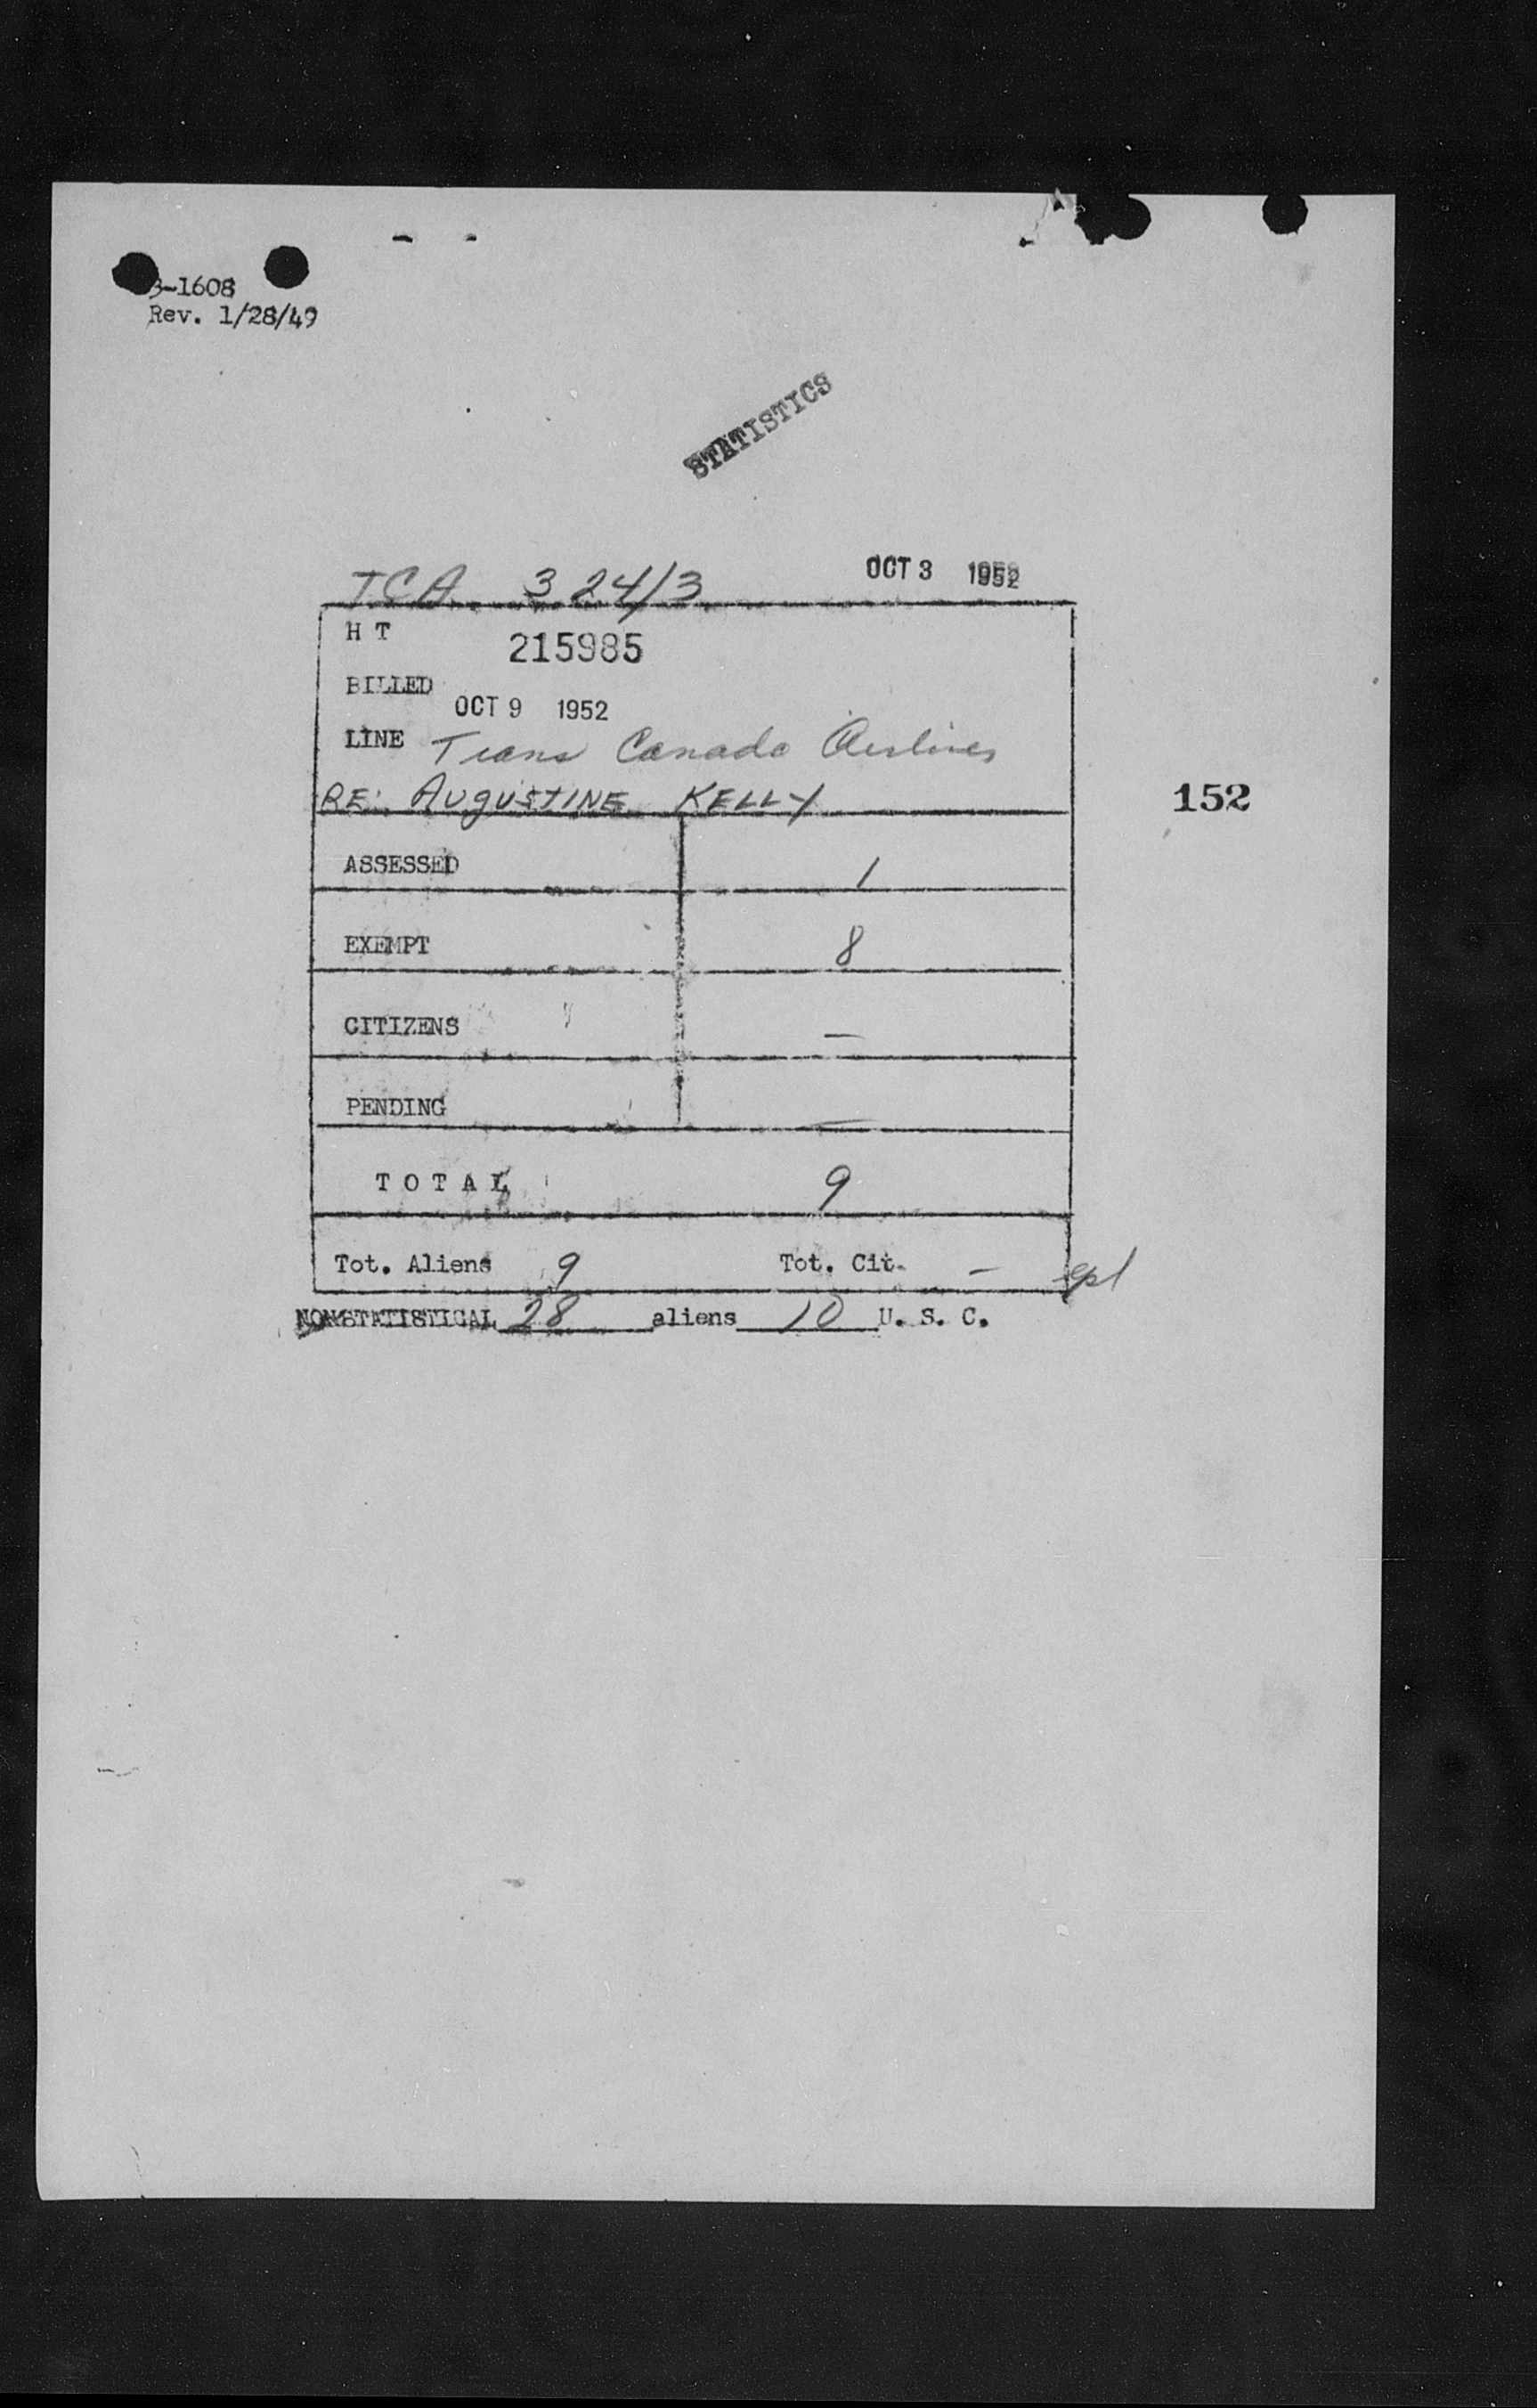 3-1608
Rev. 1/28/49
STATISTICS
TCA 324/3 OCT 3 1952
H T 215985
BILLED OCT 9 1952
LINE Trans Canada Airlines
RE: AUGUSTINE KELLY
152
ASSESSED 1
EXEMPT 8
CITIZENS —
PENDING —
TOTAL 9
Tot. Aliens 9 Tot. Cit. —
NONSTATISTICAL 28 aliens 10 U. S. C.